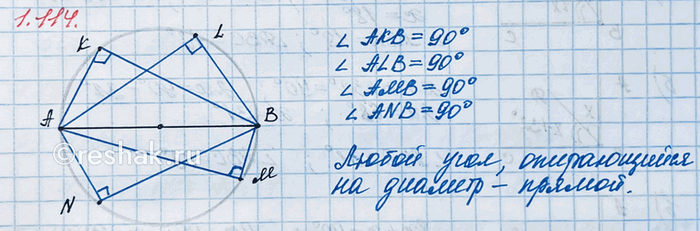 1.114.
K
L
∠ AKB = 90°
∠ ALB = 90°
∠ AMB = 90°
∠ ANB = 90°
A
B
©reshak.ru
M
N
Любой угол, опирающийся
на диаметр – прямой.